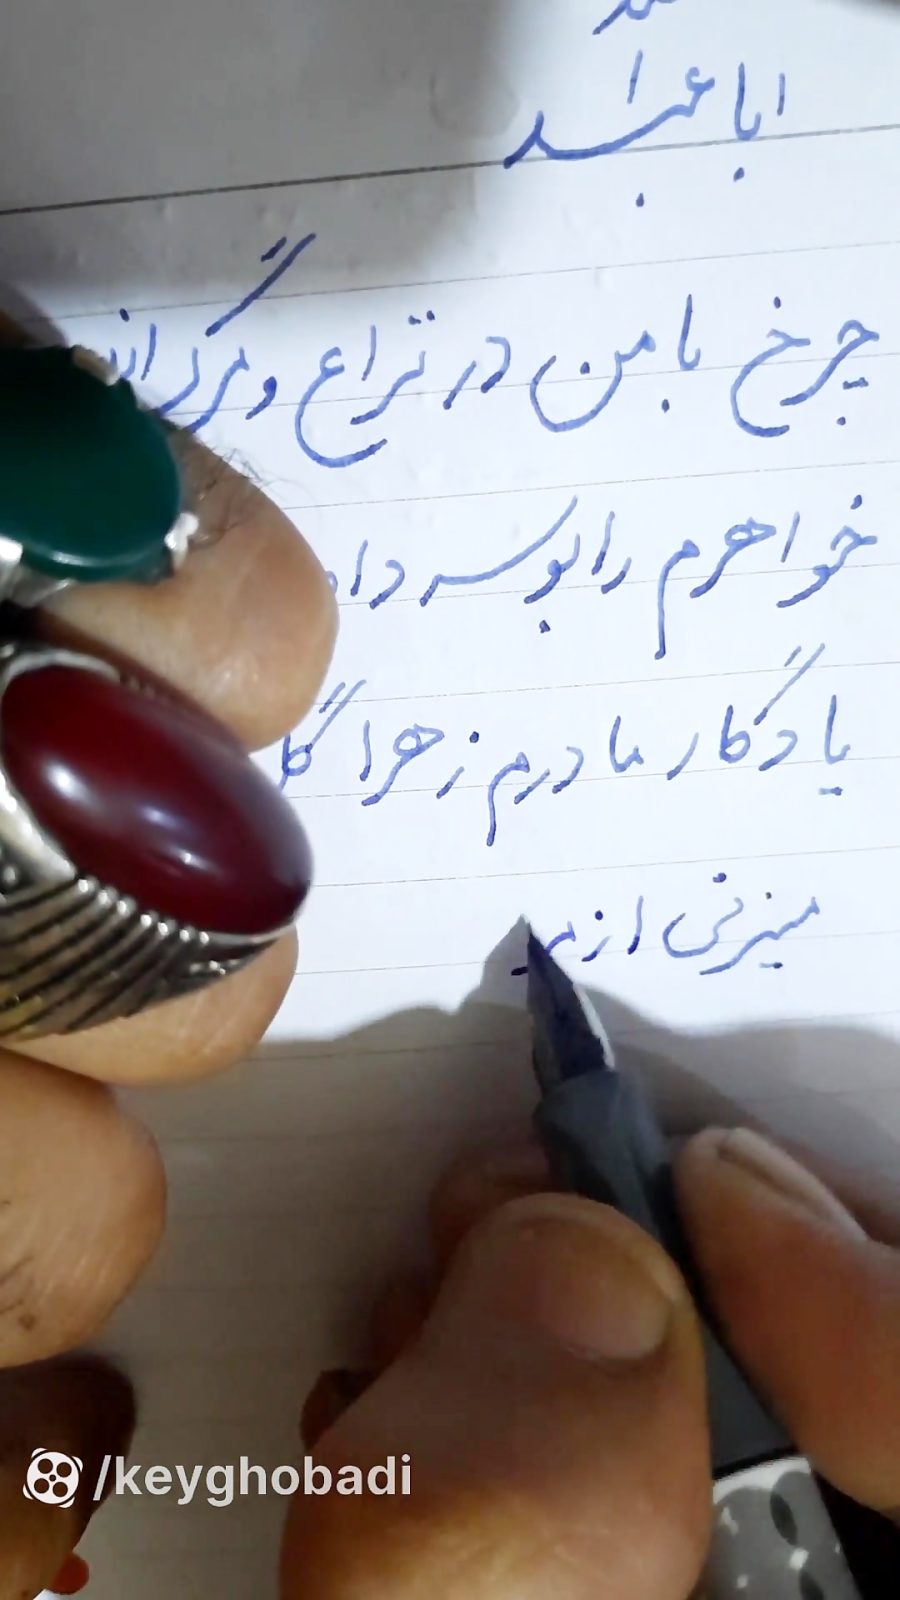 ابا عبد
چرخ با من در نزاع و مرگ
خواهرم را بوسه دا
یادگار مادرم زهرا گا
میزنی از
/keyghobadi